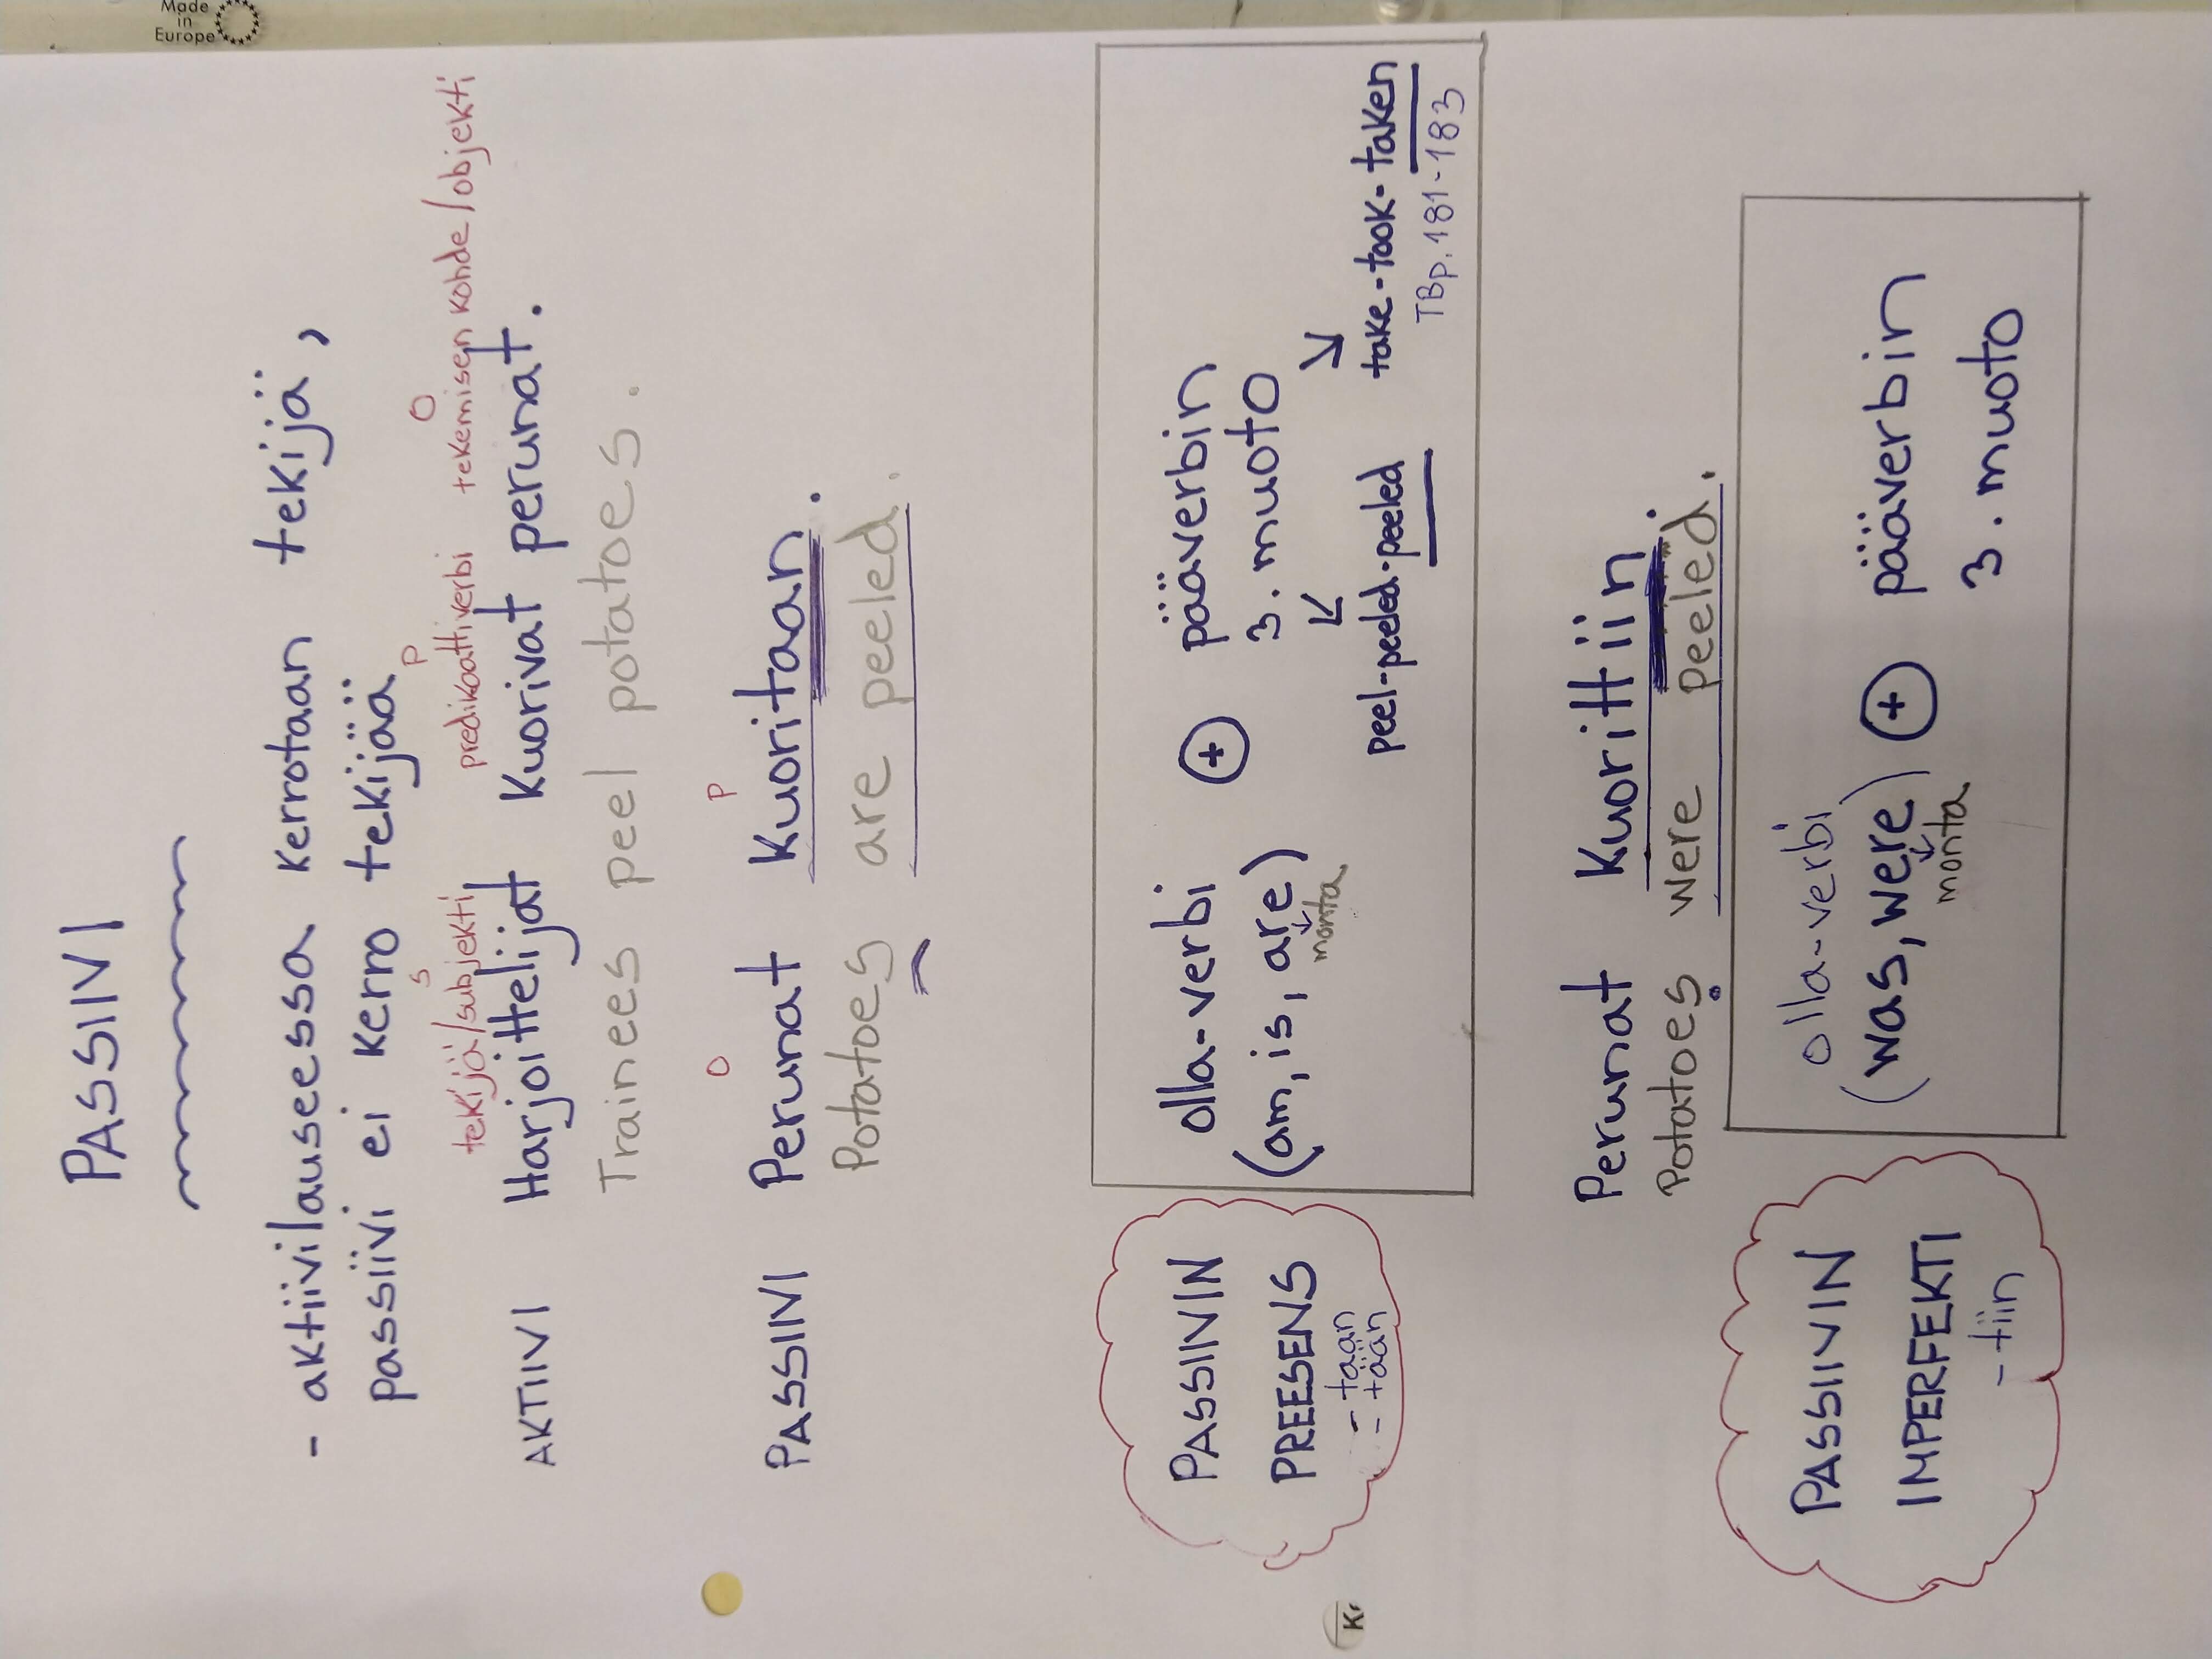 Made
in
Europe
PASSIIVI
- aktiivilauseessa kerrotaan tekijä,
passiivi ei kerro tekijää
S P O
tekijä/subjekti predikaattiverbi tekemisen kohde/objekti
AKTIIVI Harjoittelijat kuorivat perunat.
Trainees peel potatoes.
O P
PASSIIVI Perunat kuoritaan.
Potatoes are peeled.
PASSIIVIN
PREESENS
- taan
- tään
olla-verbi + pääverbin
(am, is, are) 3. muoto
monta
peel-peeled-peeled take-took-taken
TB p. 181-183
Perunat kuorittiin.
Potatoes were peeled.
PASSIIVIN
IMPERFEKTI
- tiin
olla-verbi
(was, were) + pääverbin
monta 3. muoto